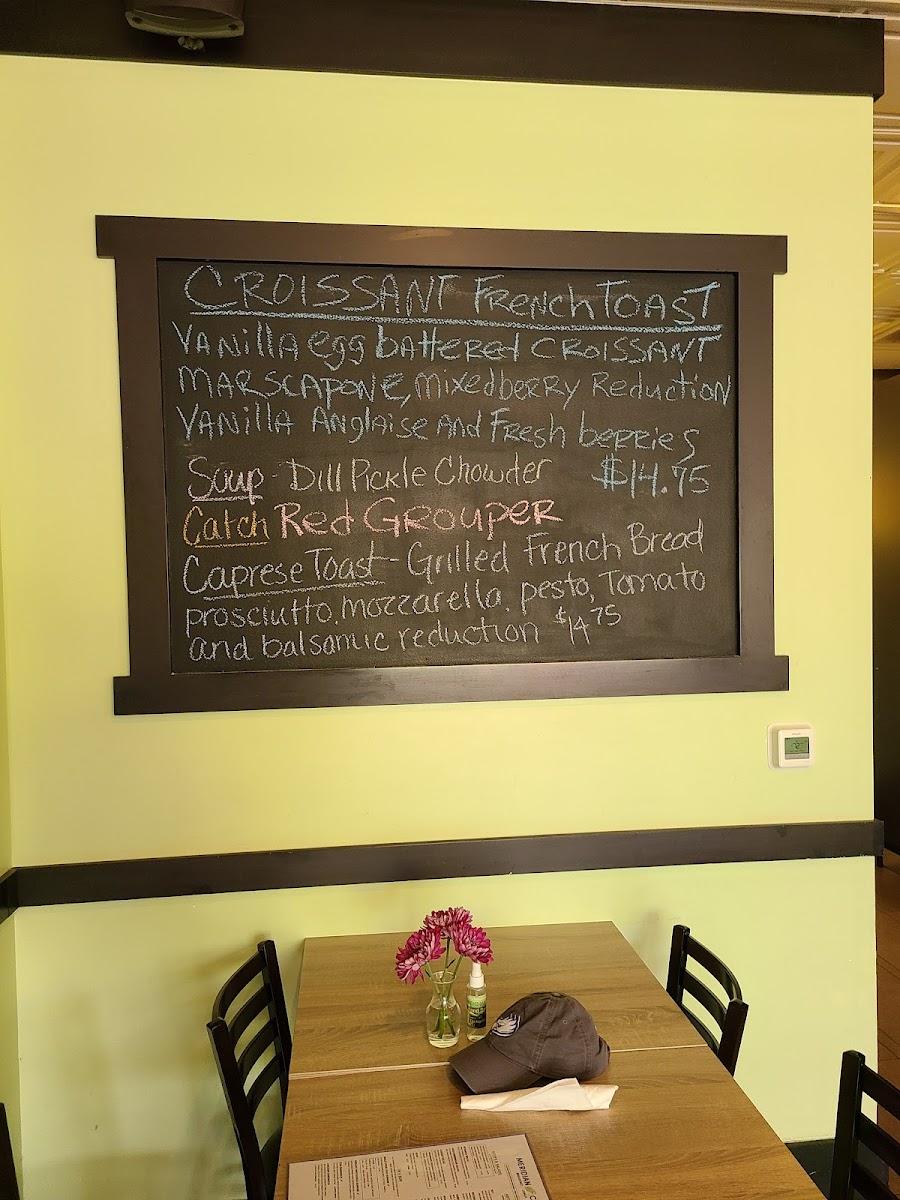 CROISSANT FRENCH TOAST
VANILLA egg battered CROISSANT
MARSCAPONE, mixed berry Reduction
VANILLA Anglaise and Fresh berries
$14.75
Soup - Dill Pickle Chowder
Catch Red Grouper
Caprese Toast - Grilled French Bread
prosciutto, mozzarella, pesto, Tomato
and balsamic reduction $14.75
MERIDIAN